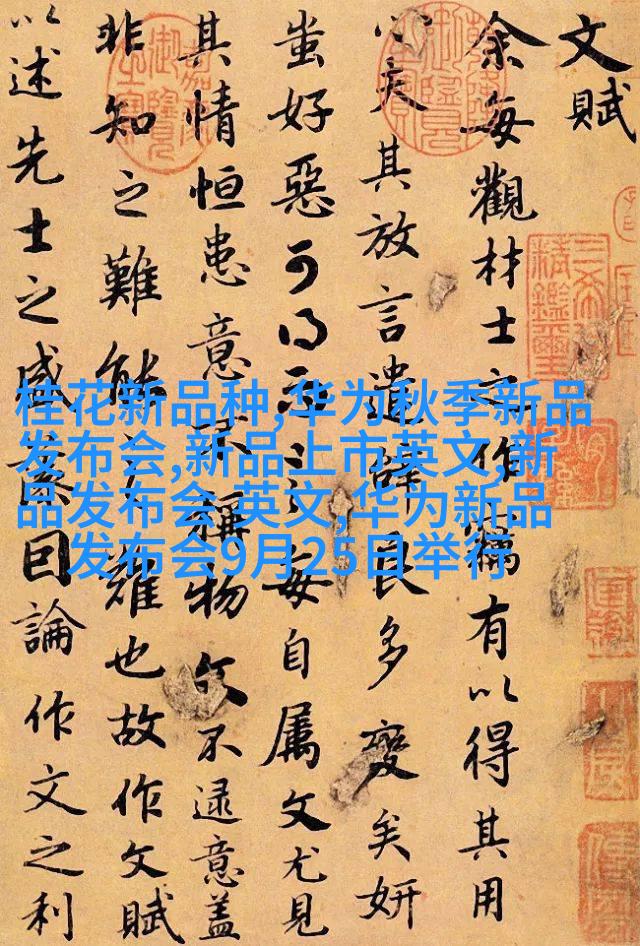 文賦
余每觀材士之作竊有以得其用
心夫其放言遣辭良多變矣妍
蚩好惡可得而言每自屬文尤見
其情恒患意不稱物文不逮意盖
非知之難能之難也故作文賦
以述先士之盛藻因論作文之利
桂花新品种,华为秋季新品
发布会,新品上市英文,新
品发布会 英文,华为新品
发布会9月25日举行